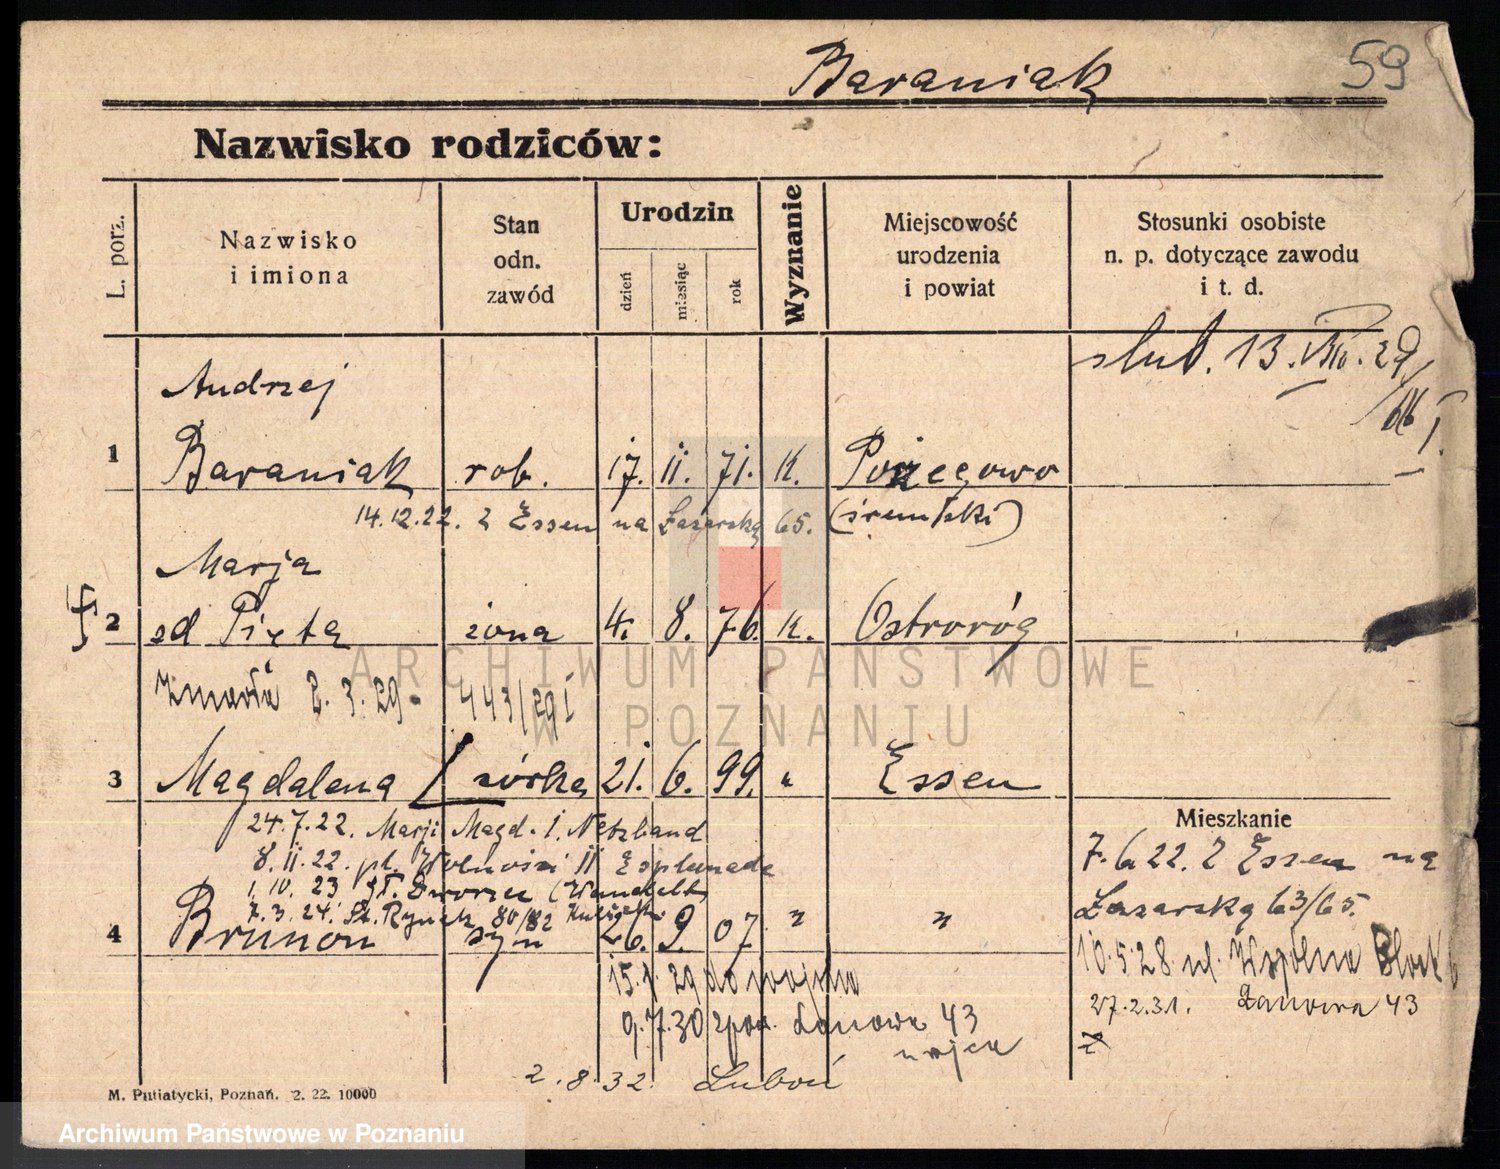 Baraniak
59
Nazwisko rodziców:
L. porz.
Nazwisko
i imiona
Stan
odn.
zawód
Urodzin
dzień
miesiąc
rok
Wyznanie
Miejscowość
urodzenia
i powiat
Stosunki osobiste
n. p. dotyczące zawodu
i t. d.
slub. 13. VIII. 29
Andrzej
1 Baraniak rob. 17. 11. 71. K. Pożegowo
14.12.22. z Essen na Łazarską 65. (śremski)
Marja
2 zd Pięta żona 4. 8. 76. K. Ostroróg
Zmarła 2.3.29 - 443/29 I
3 Magdalena córka 21. 6. 99. " Essen
24.7.22. Marji Magd. 1. Netzband
8.11.22. pl. Wolności 11 Esplanada
1.10.23 Dworzec
7.3.24. St. Rynek 80/82
4 Brunon syn 26. 9 07 " "
15.1 29 do wojska
9.7.30 Łanowa 43
wojsk
2.8.32. Luboń
Mieszkanie
7.6.22. z Essen na
Łazarską 63/65.
10.5.28. ul. Wspólna Blok 6
27.2.31. Łanowa 43
M. Putiatycki, Poznań. 2. 22. 10000
ARCHIWUM PAŃSTWOWE
W POZNANIU
Archiwum Państwowe w Poznaniu